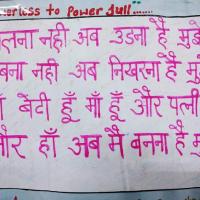 Powerless to Power full......
चलना नही अब उडना है मुझे
बना नही अब निखरना है मुझे
बेटी हूँ माँ हूँ और पत्नी
और हाँ अब मै बनना है मु